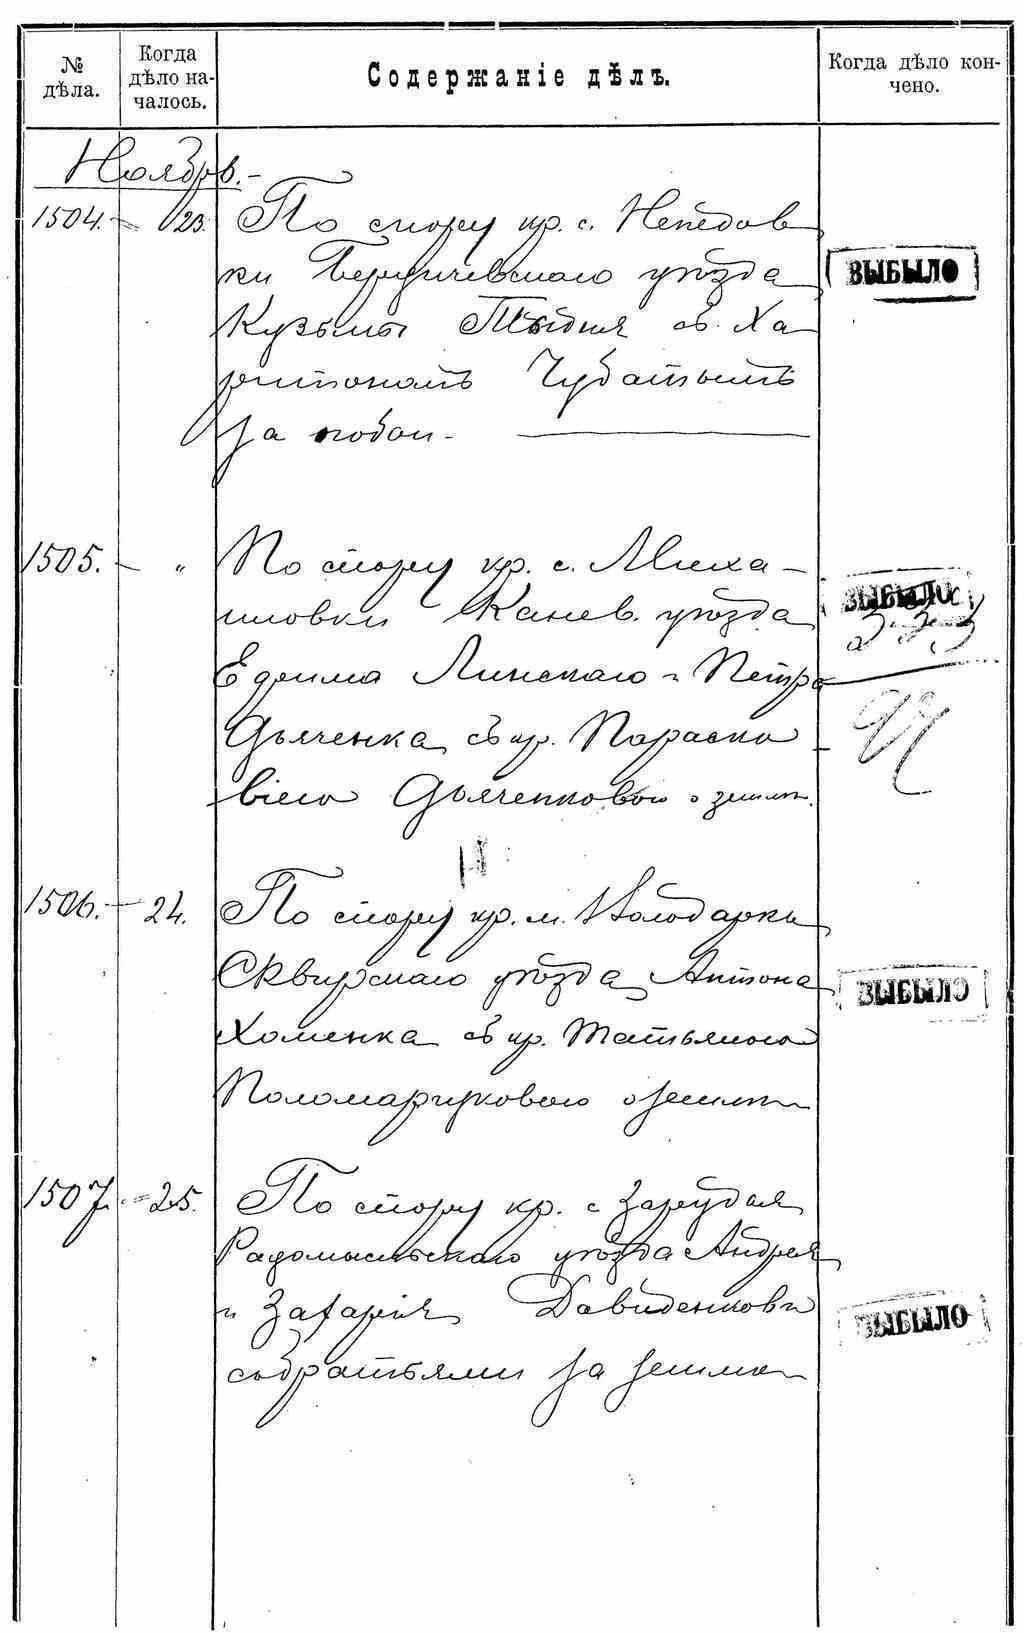 № дѣла.
Когда дѣло началось.
Содержаніе дѣлъ.
Когда дѣло кончено.
Ноябрь.-
1504. - 23. По спору кр. с. Непедов
ки Бердичевскаго уѣзда
ВЫБЫЛО
Кузьмы съ Ха
ритономъ Чубатымъ
за побои. -
1505. - „ По спору кр. с. Миха-
иловки Канев. уѣзда
ВЫБЫЛО
Ефрима Линскаго и Петра
Дьяченка съ кр. Параско
віею Дьяченковою о земл.
1506. - 24. По спору кр. м. Володарки
Сквирскаго уѣзда Антона
ВЫБЫЛО
Хоменка съ кр. Татьяною
Поломарчуковою о земл
1507. - 25. По спору кр. с Зарудья
Радомысльскаго уѣзда Андрея
и Захарія Давиденкови
ВЫБЫЛО
съ братьями за земл